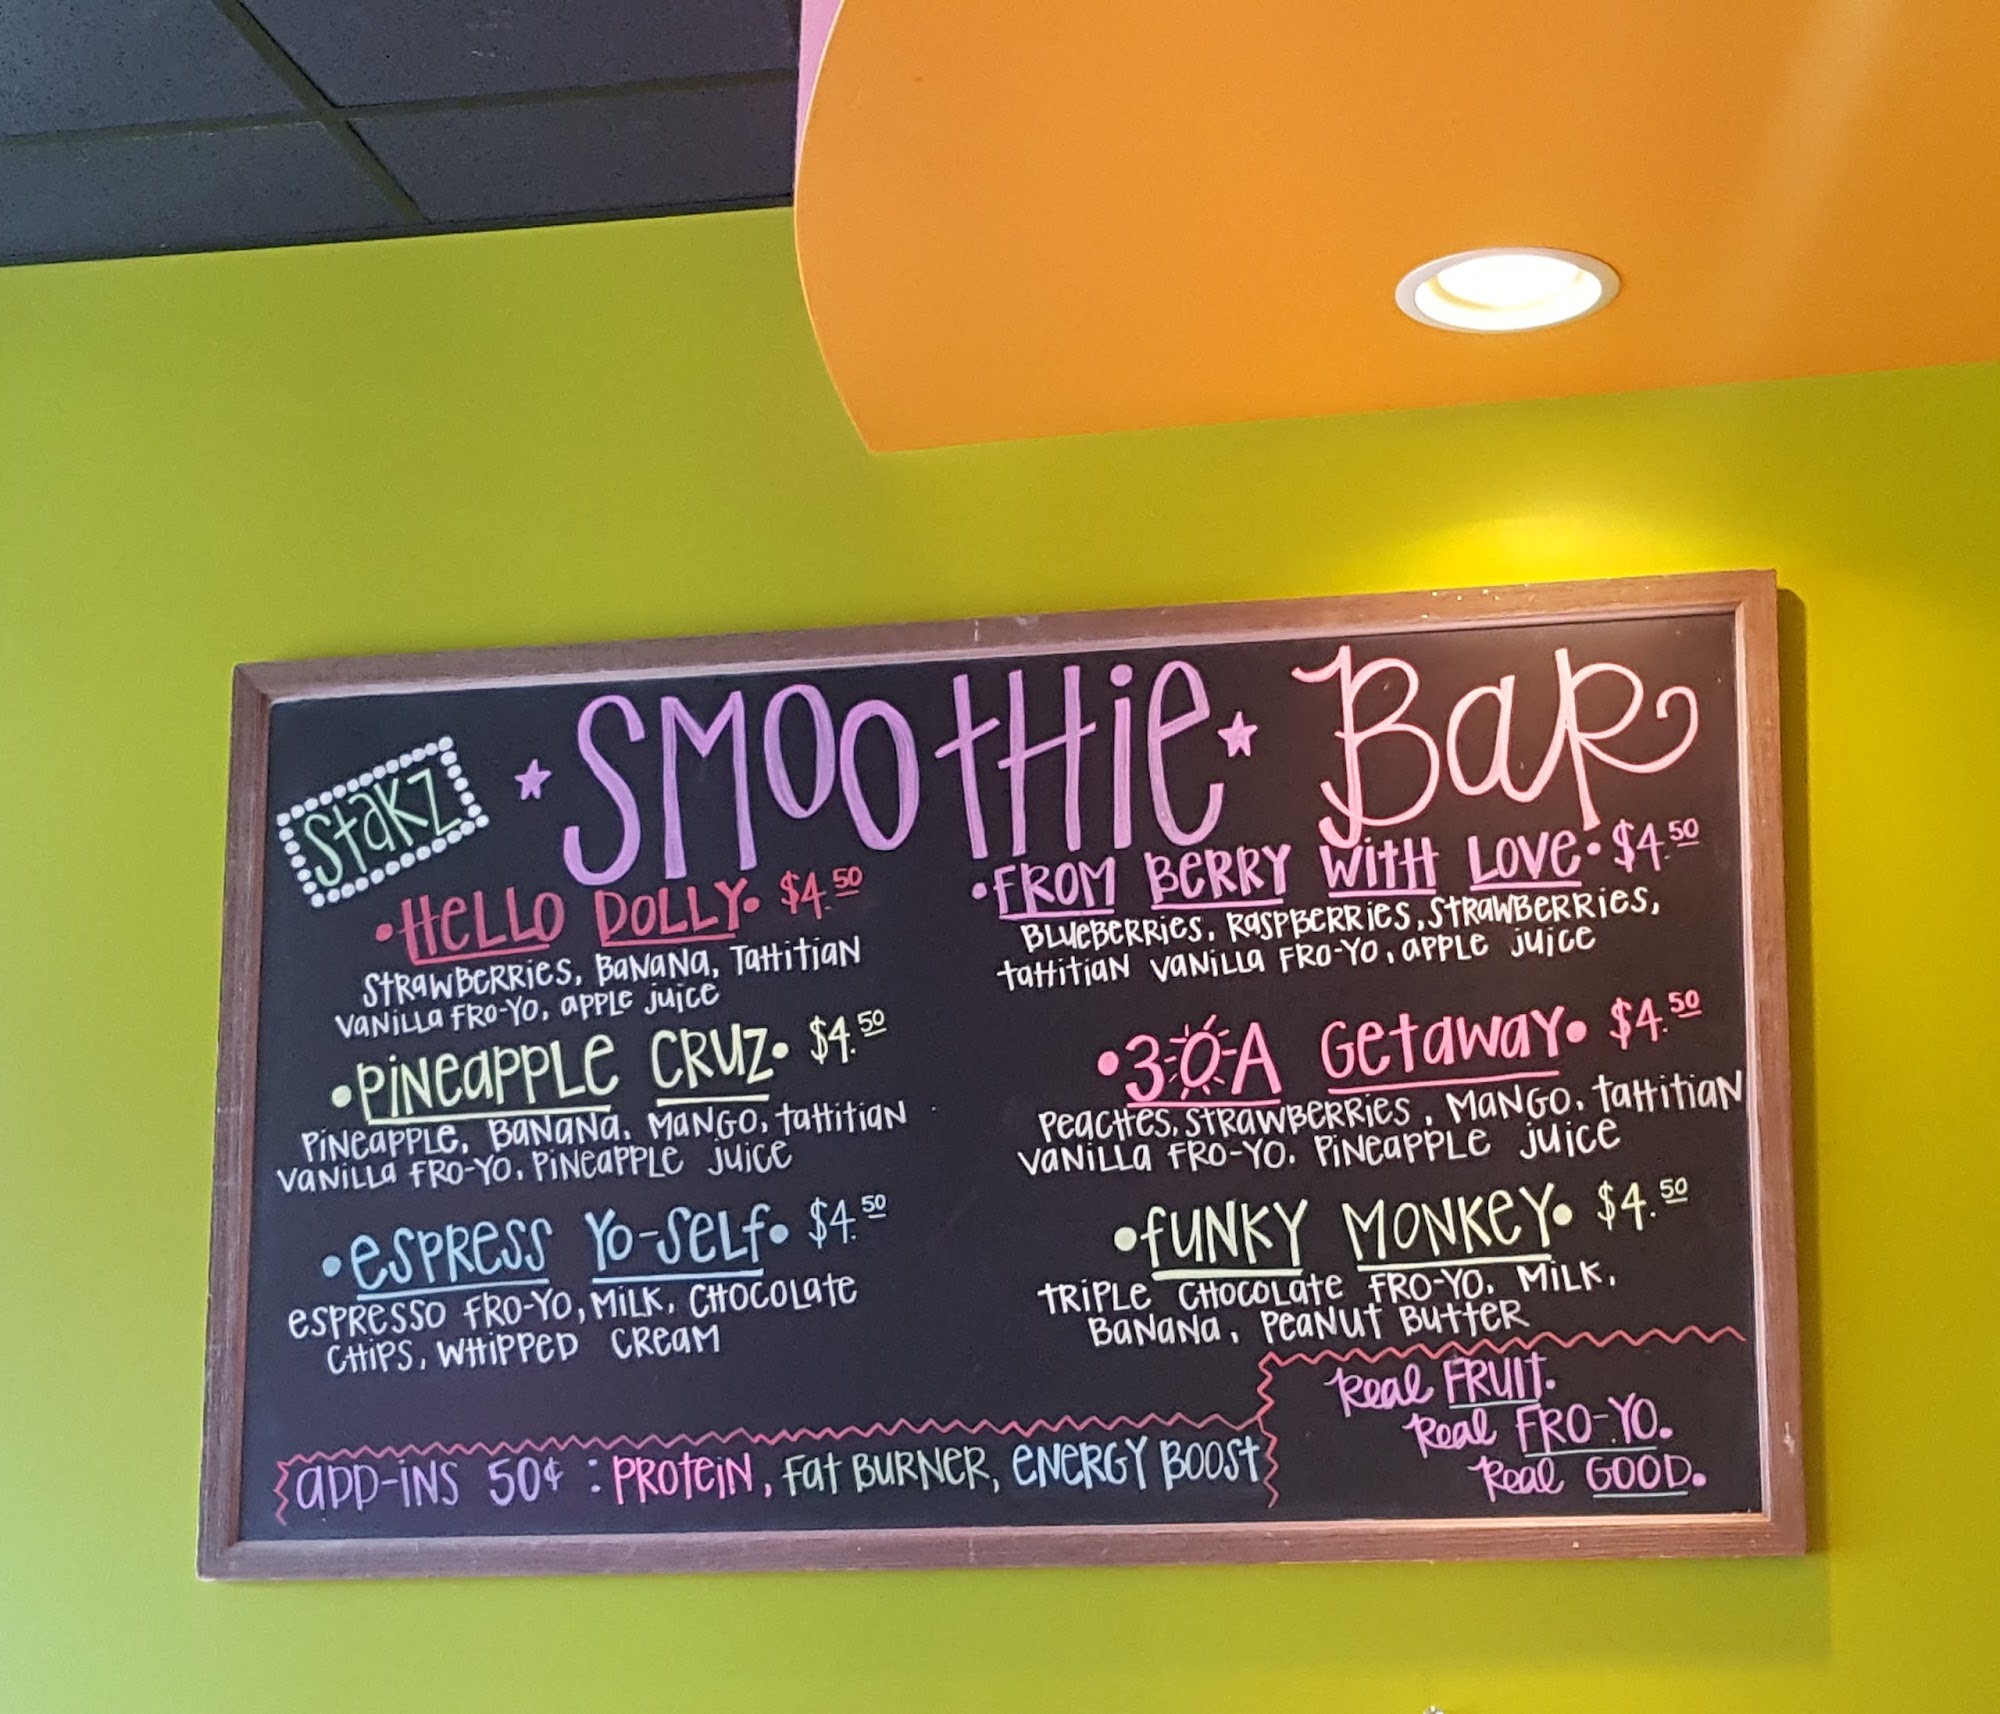 Stakz
SMOOTHIE BAR
HELLO DOLLY $4.50
STRAWBERRIES, BANANA, TAHITIAN
VANILLA FRO-YO, APPLE JUICE
PINEAPPLE CRUZ $4.50
PINEAPPLE, BANANA, MANGO, TAHITIAN
VANILLA FRO-YO, PINEAPPLE JUICE
ESPRESS YO-SELF $4.50
ESPRESSO FRO-YO, MILK, CHOCOLATE
CHIPS, WHIPPED CREAM
FROM BERRY WITH LOVE $4.50
BLUEBERRIES, RASPBERRIES, STRAWBERRIES,
TAHITIAN VANILLA FRO-YO, APPLE JUICE
3-O-A GETAWAY $4.50
PEACHES, STRAWBERRIES, MANGO, TAHITIAN
VANILLA FRO-YO, PINEAPPLE JUICE
FUNKY MONKEY $4.50
TRIPLE CHOCOLATE FRO-YO, MILK,
BANANA, PEANUT BUTTER
APP-INS 50¢ : PROTEIN, FAT BURNER, ENERGY BOOST
Real FRUIT.
Real FRO-YO.
Real GOOD.